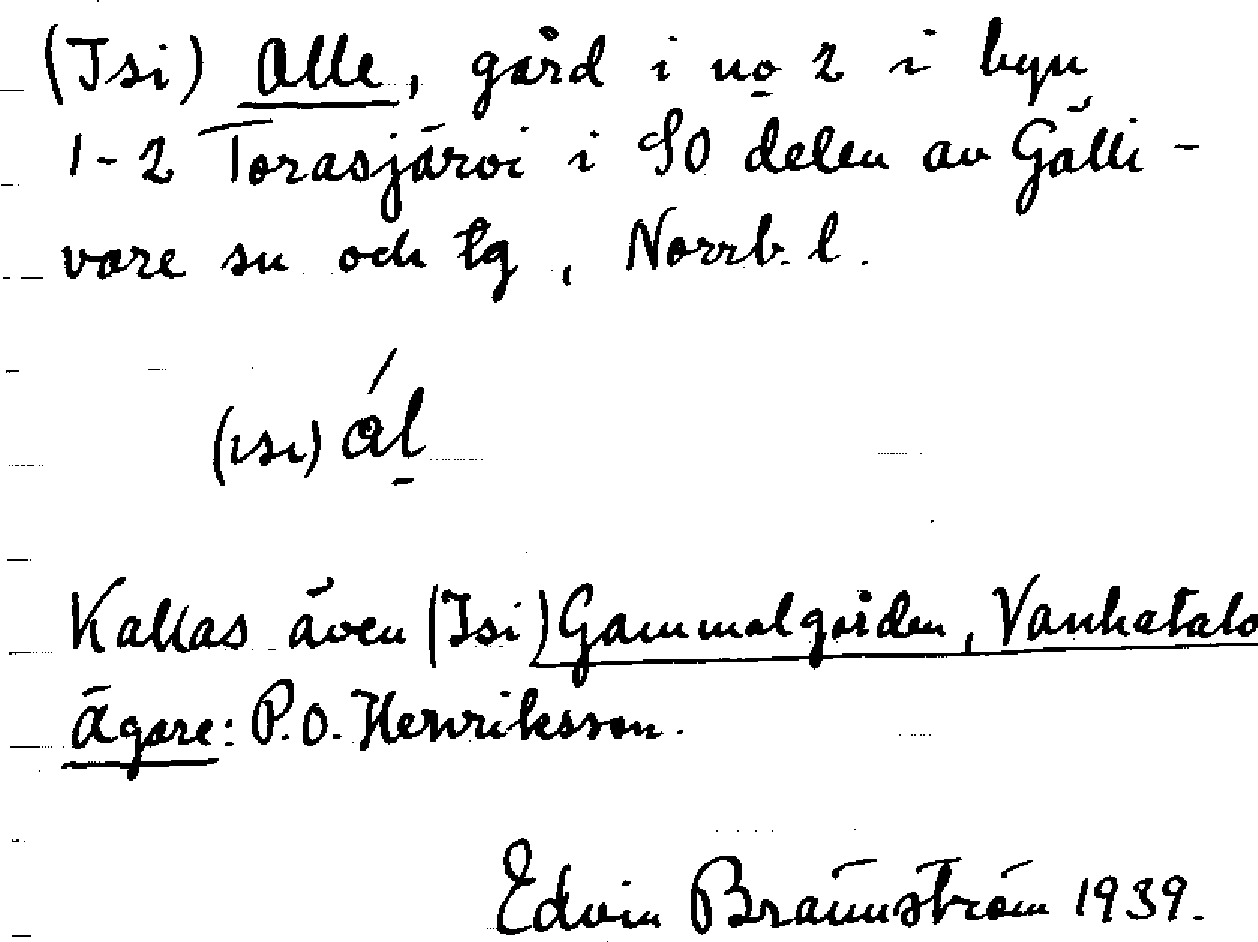 (Isi) Alle, gård i no 2 i byn
1-2 Torasjärvi i SO delen av Gälli-
vare sn och tg, Norrb. l.
(ısı) ál
Kallas även (Isi) Gammalgården, Vanhatalo
Ägare: P.O. Henriksson.
Edvin Brännström 1939.